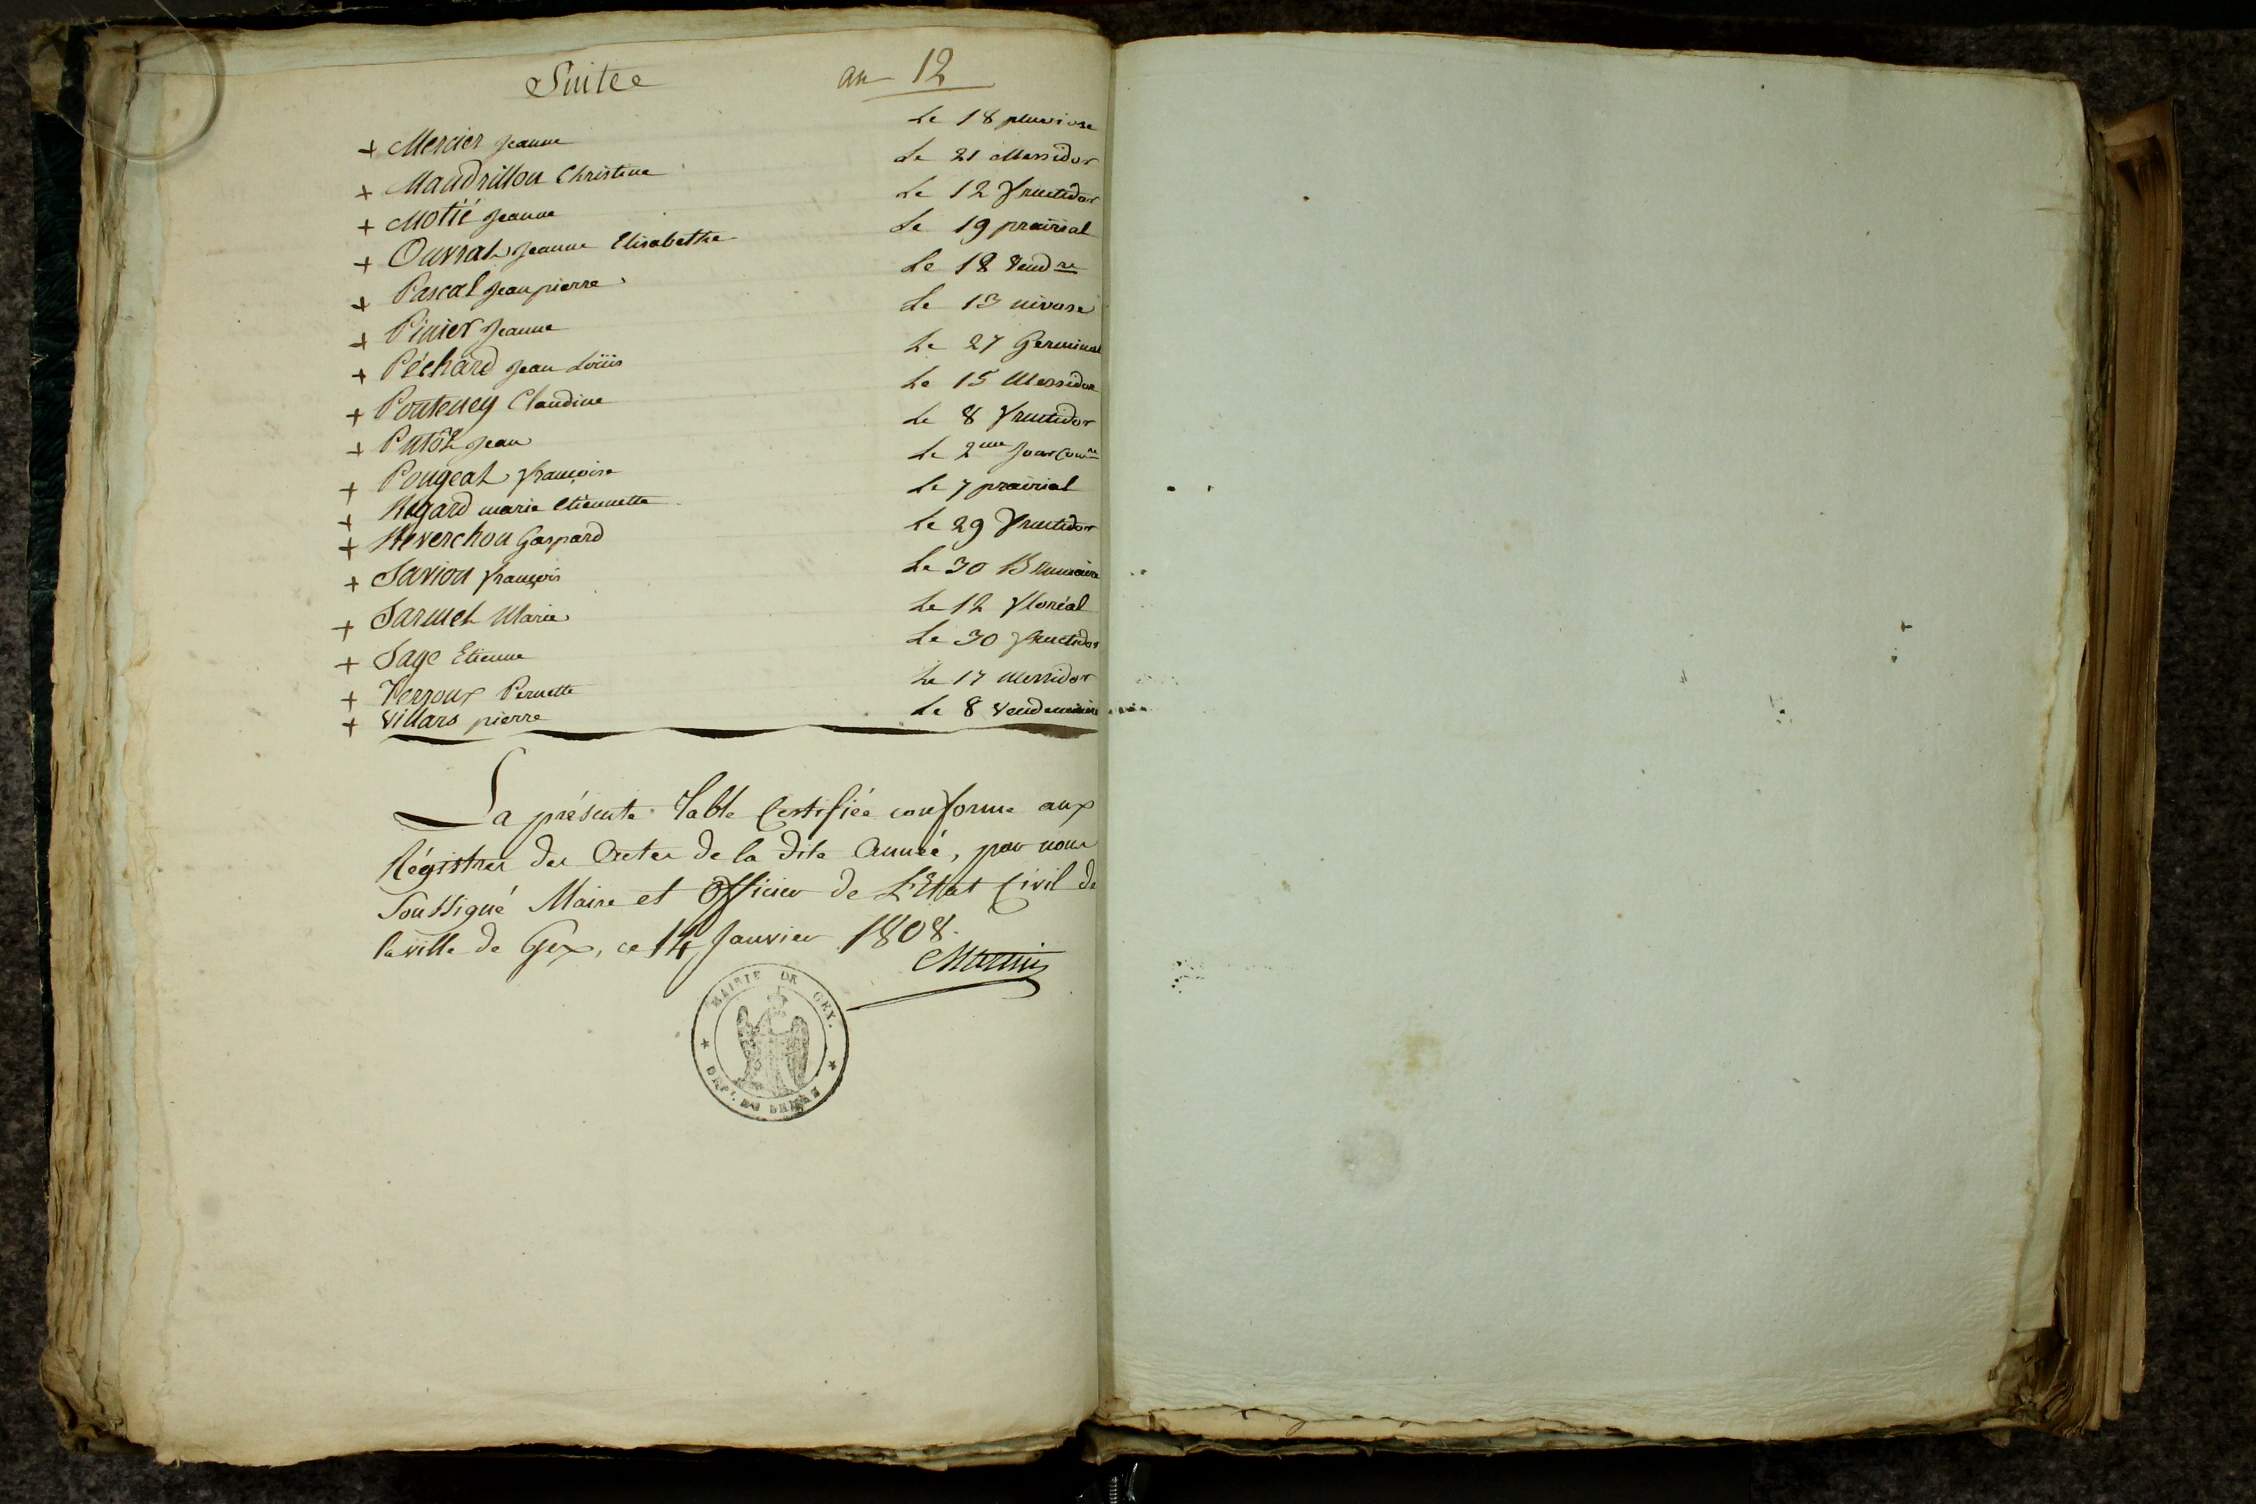 Suite an 12
+ Mercier Jeanne Le 18 pluviose
+ Maudrillon Christine Le 21 Messidor
+ Motié Jeanne Le 12 fructidor
+ Ouvrat Jeanne Elisabethe Le 19 prairial
+ Pascal Jean pierre Le 18 Vend re
+ Pinier Jeanne Le 13 nivose
+ Péchard Jean Loüis Le 27 Germinal
+ Ponteney Claudine Le 15 Messidor
+ Putôt Jean Le 8 fructidor
+ Pougeat françoise Le 2 me Jour Com re
+ Régard marie etiennette Le 7 prairial
+ Reverchon Gaspard Le 29 fructidor
+ Savion françois Le 30 Brumaire
+ Sarmet Marie Le 12 floréal
+ Sage Etienne Le 30 fructidor
+ Verroux Pernette Le 17 messidor
+ Villars pierre Le 8 Vendemiaire
La présente Table Certifiée conforme aux
Régistres des Actes de la dite Année, par nous
Soussigné Maire et Officier de L'Etat Civil de
la ville de Gex, ce 14 Janvier 1808.
MAIRIE DE GEX.
DEPT. DU LEMAN